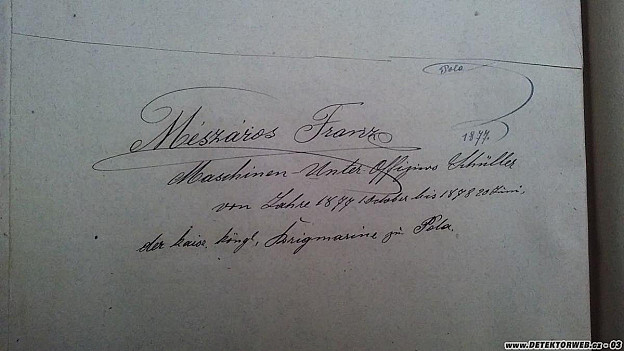 Pola
1877.
Mészáros Franz
Maschinen-Unter Offiziers Schüller
von Jahre 1877 1 October bis 1878 20 Juni,
der kaise. köngl. Krigmarine zu Pola.
www.DETEKTORWEB.cz - 03